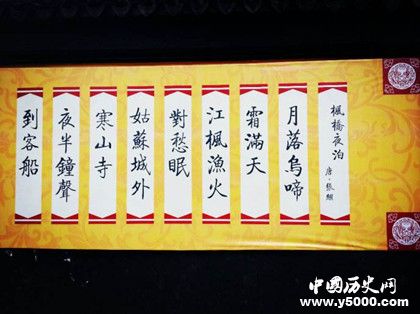 楓橋夜泊
唐·張繼
月落烏啼
霜滿天
江楓漁火
對愁眠
姑蘇城外
寒山寺
夜半鐘聲
到客船
中國历史网
www.y5000.com